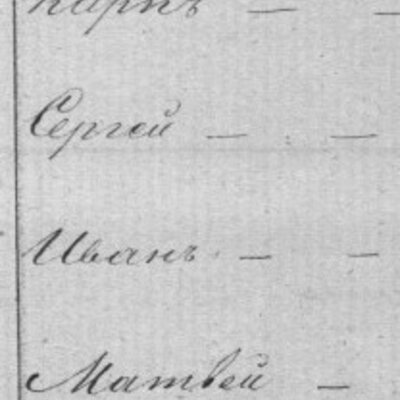 Карпъ — —
Сергей — —
Иванъ — —
Матвей —